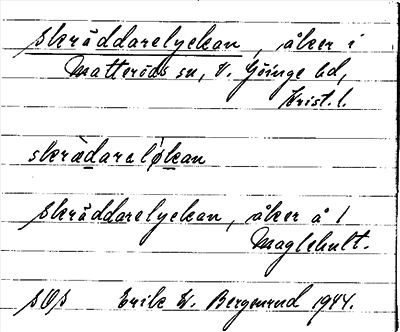 Skräddarelyckan, åker i
Matteröds sn, V. Göinge hd,
Krist. l.
skrädaraløkan
Skräddarelyckan, åker å 1
Maglehult.
SOS Erik W. Bergstrand 1944.